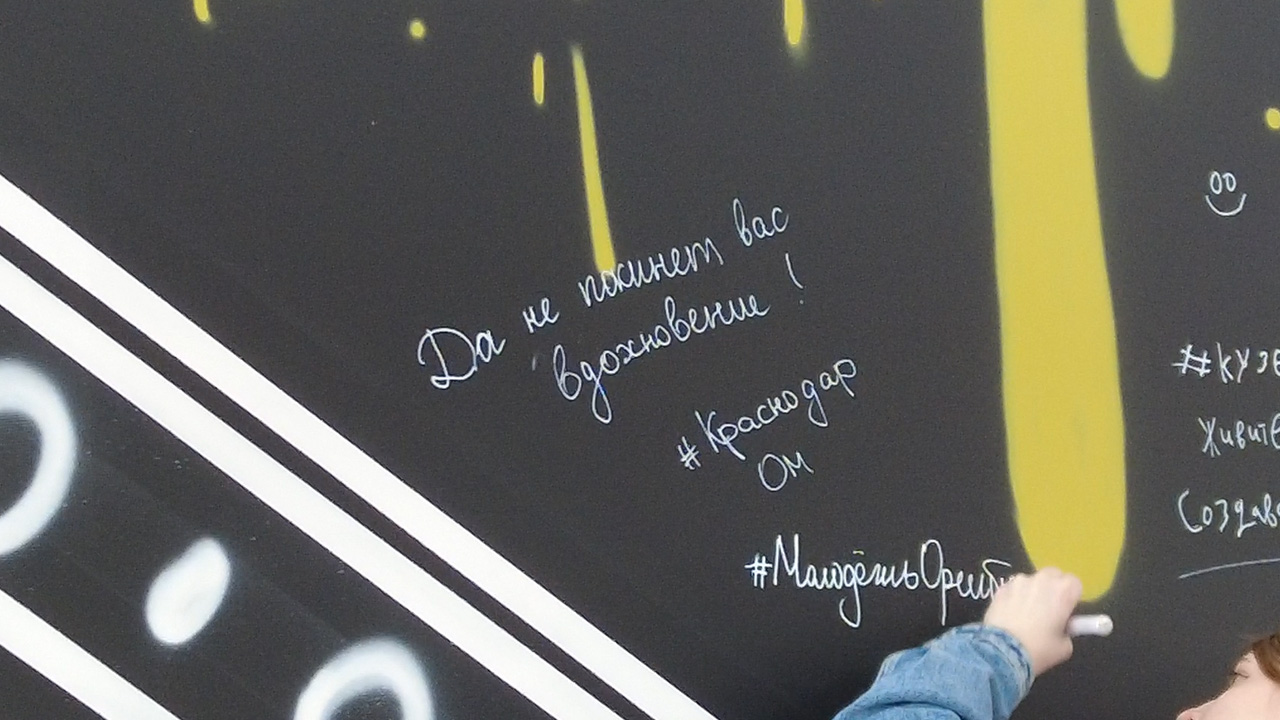 Да не покинет вас
вдохновение!
#Краснодар
ОМ
#МолодёжьОренб
#КУЗЕ
Живите
Создава